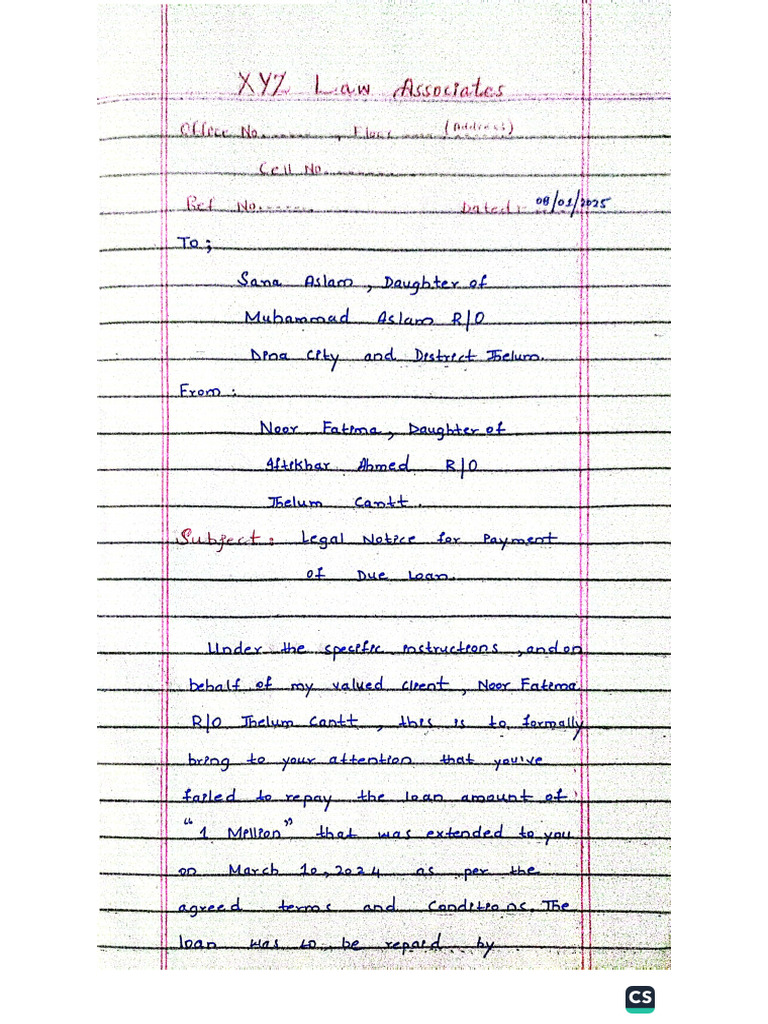 XYZ Law Associates
Office No......, Floor ....(Address)
Cell No...........
Ref No....... Dated:- 08/01/2025
To;
Sana Aslam, Daughter of
Muhammad Aslam R/O
Dina City and District Jhelum.
From:
Noor Fatima, Daughter of
Aftikhar Ahmed R/O
Jhelum Cantt.
Subject: Legal Notice for Payment
of Due Loan.
Under the specific instructions, and on
behalf of my valued client, Noor Fatima
R/O Jhelum Cantt, this is to formally
bring to your attention that you've
failed to repay the loan amount of
"1 Million" that was extended to you
on March 10, 2024 as per the
agreed terms and conditions. The
loan was to be repaid by
CS